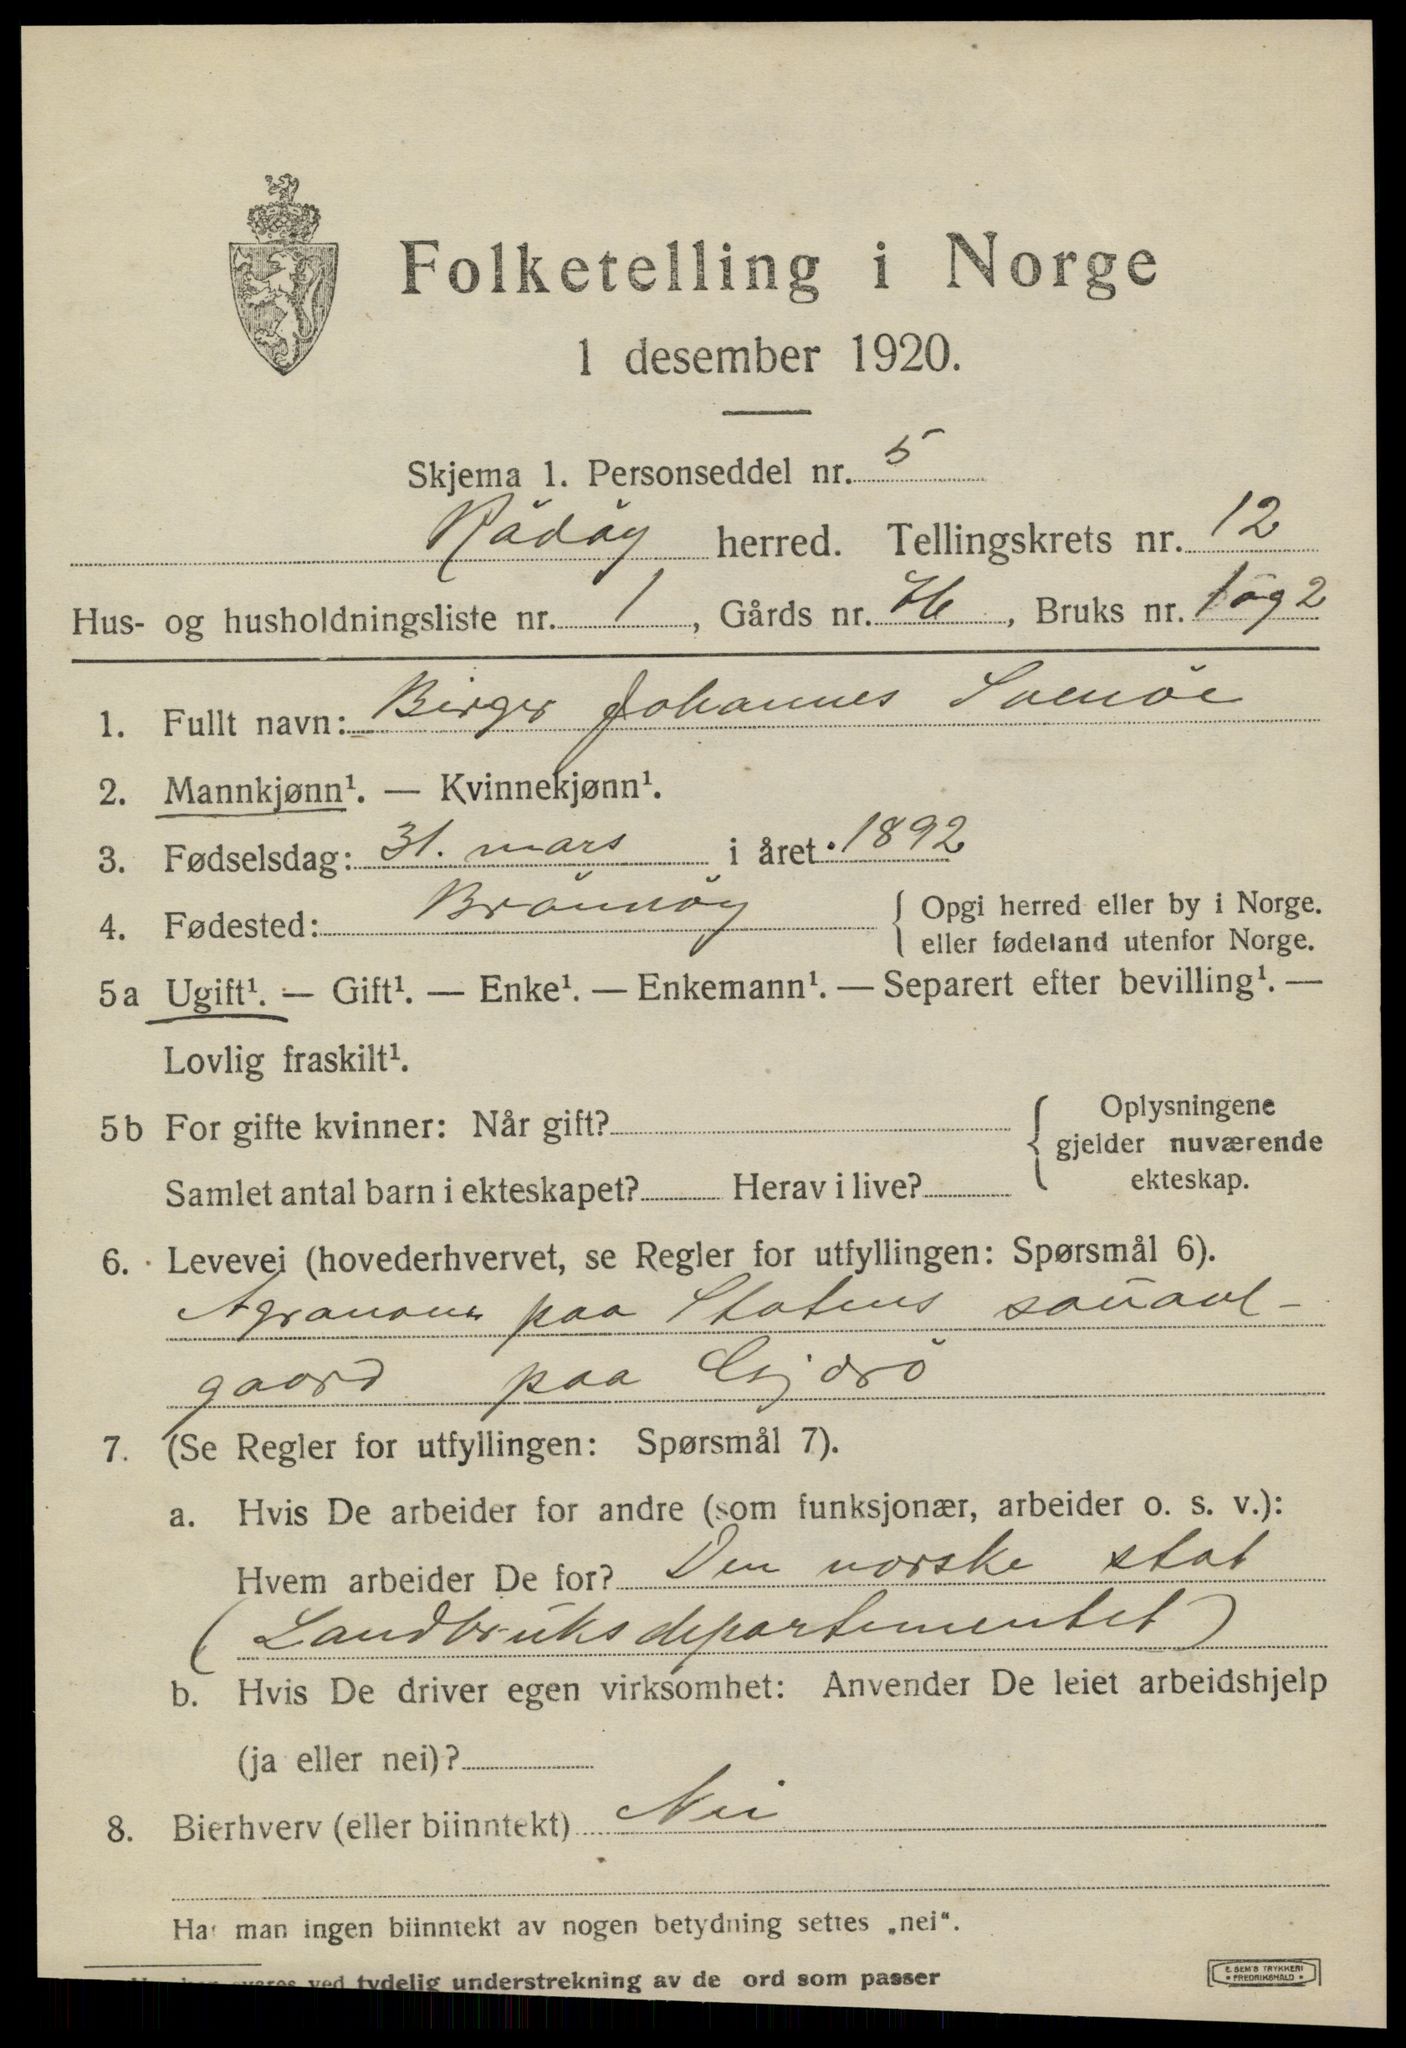 Folketelling i Norge
1 desember 1920.
Skjema 1. Personseddel nr. 5
Rådöy herred. Tellingskrets nr. 12
Hus- og husholdningsliste nr. 1, Gårds nr. , Bruks nr. 1 og 2
1. Fullt navn: Birger Johannes
2. Mannkjønn¹. — Kvinnekjønn¹.
3. Fødselsdag: 31. mars i året 1892
4. Fødested: Brönnöy { Opgi herred eller by i Norge.
eller fødeland utenfor Norge.
5a Ugift¹. — Gift¹. — Enke¹. — Enkemann¹. — Separert efter bevilling¹. —
Lovlig fraskilt¹.
5b For gifte kvinner: Når gift? { Oplysningene
gjelder nuværende
Samlet antal barn i ekteskapet? Herav i live? ekteskap.
6. Levevei (hovederhvervet, se Regler for utfyllingen: Spørsmål 6).
Agronom paa Statens
gaard paa
7. (Se Regler for utfyllingen: Spørsmål 7).
a. Hvis De arbeider for andre (som funksjonær, arbeider o. s. v.):
Hvem arbeider De for? Den norske stat
(Landbruksdepartementet)
b. Hvis De driver egen virksomhet: Anvender De leiet arbeidshjelp
(ja eller nei)?
8. Bierhverv (eller biinntekt) Nei
Har man ingen biinntekt av nogen betydning settes „nei“.
svares ved tydelig understrekning av de ord som passer
E. SEM'S TRYKKERI
FREDRIKSHALD